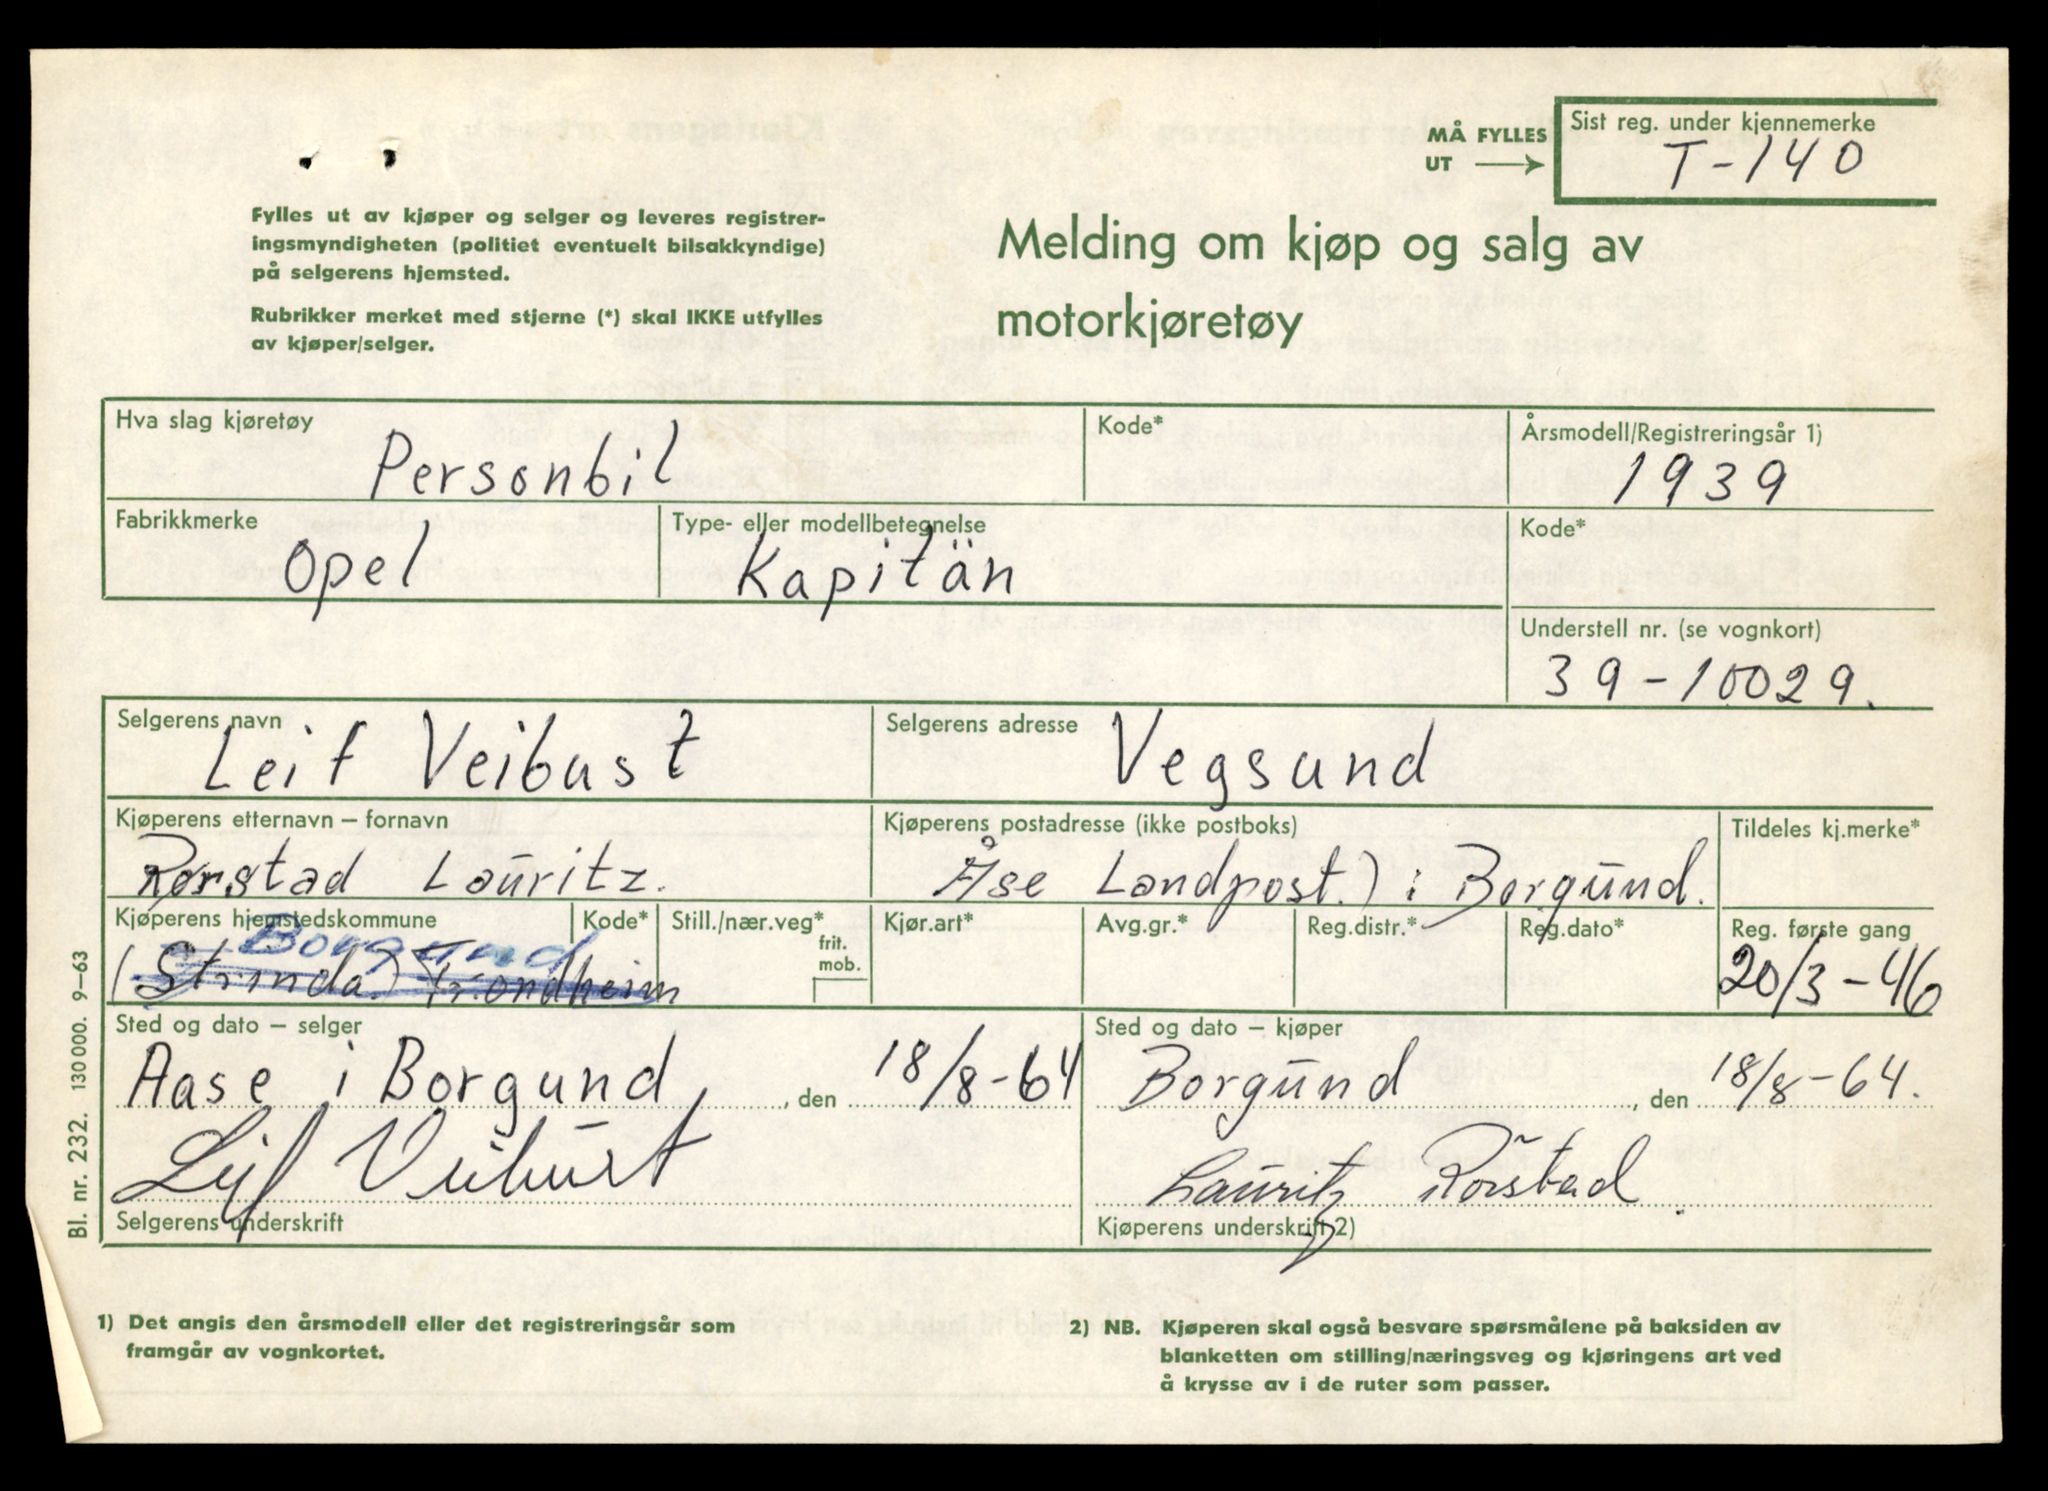 MÅ FYLLES UT →
Sist reg. under kjennemerke
T-140
Fylles ut av kjøper og selger og leveres registrer-
ingsmyndigheten (politiet eventuelt bilsakkyndige)
på selgerens hjemsted.
Rubrikker merket med stjerne (*) skal IKKE utfylles
av kjøper/selger.
Melding om kjøp og salg av
motorkjøretøy
Hva slag kjøretøy
Personbil
Kode*
Årsmodell/Registreringsår 1)
1939
Fabrikkmerke
Opel
Type- eller modellbetegnelse
Kapitän
Kode*
Understell nr. (se vognkort)
39-10029.
Selgerens navn
Leif Veibust
Selgerens adresse
Vegsund
Kjøperens etternavn – fornavn
Rørstad Lauritz.
Kjøperens postadresse (ikke postboks)
Åse Landpost.) i Borgund.
Tildeles kj.merke*
Kjøperens hjemstedskommune
Borgund
(Strinda) Trondheim
Kode*
Still./nær.veg*
frit.
mob.
Kjør.art*
Avg.gr.*
Reg.distr.*
Reg.dato*
Reg. første gang
20/3-46
Sted og dato – selger
Aase i Borgund, den 18/8-64
Leif Veibust
Selgerens underskrift
Sted og dato – kjøper
Borgund, den 18/8-64.
Lauritz Rørstad
Kjøperens underskrift 2)
Bl. nr. 232. 130 000. 9–63
1) Det angis den årsmodell eller det registreringsår som
framgår av vognkortet.
2) NB. Kjøperen skal også besvare spørsmålene på baksiden av
blanketten om stilling/næringsveg og kjøringens art ved
å krysse av i de ruter som passer.